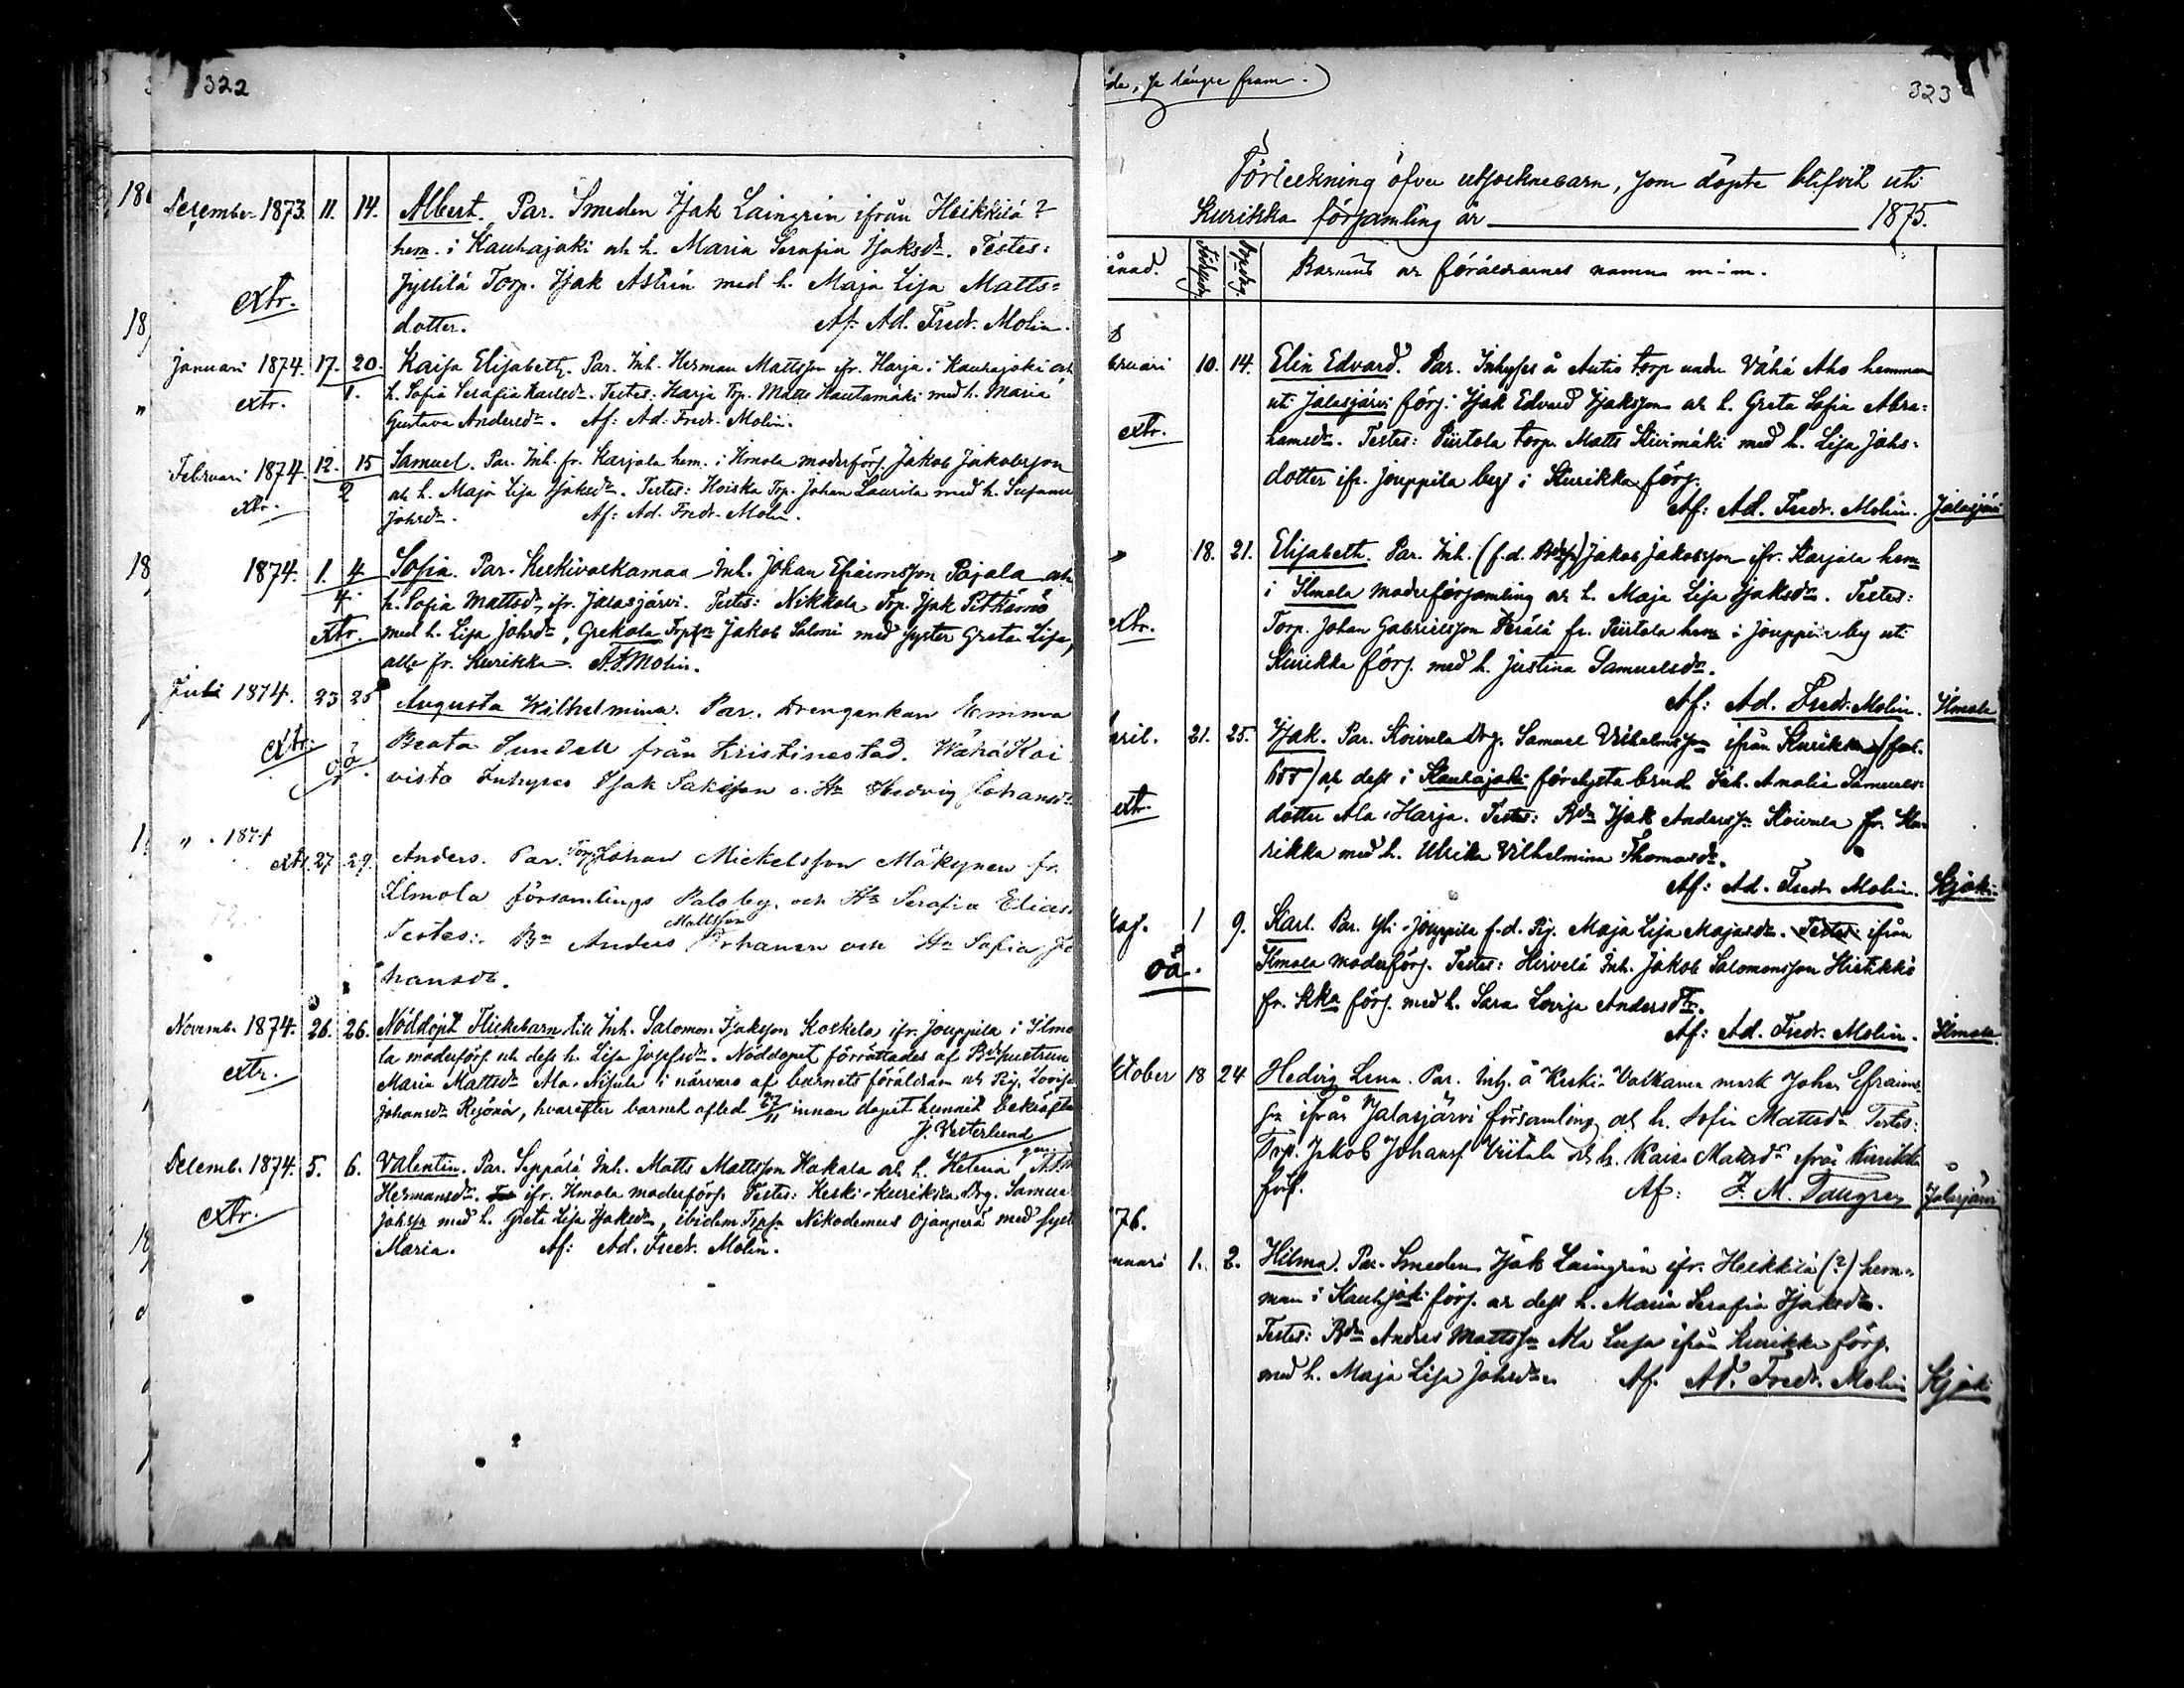 322
Desember 1873. 11. 14. Albert. Par. Smeden Isak Laingrin ifrån Heikkilä?
hem. i Kauhajoki och h. Maria Serafia Isaksdr. Testes:
Jyllilä Torp. Isak Aström med h. Maja Lisa Matts=
extr.
dotter. Af: Ad. Fredr. Molin.
Januari 1874. 17. 20. Kaisa Elisabeth. Par. Inh. Herman Mattsson ifr. Harja i Kauhajoki och
" extr. 1. h. Sofia Serafia Karlsdr. Testes: Harja Trp. Matts Rautamäki med h. Maria
Gustava Andersdr. Af: Ad. Fredr. Molin.
Februari 1874. 12. 15 Samuel. Par. Inh. fr. Karjala hem. i Ilmola moderförs. Jakob Jakobsson
extr. 2 och h. Maja Lisa Isaksdr. Testes: Hoiska Trp. Johan Laurila med h. Susanna
Johsdr. Af: Ad. Fredr. Molin.
1874. 1. 4 Sofia. Par. Keskivalkamaa Inh. Johan Efraimsson Pajala och
4. h. Sofia Mattsdr ifr. Jalasjärvi. Testes: Nikkola Trp. Isak Pitkämö
extr. med h. Lisa Johsdr, Grekola Trpsn Jakob Salomi med syster Greta Lisa,
alla fr. Kurikka. A.F. Molin.
Juli 1874. 23 25 Augusta Wilhelmina. Par. Drengenkan Emma
extr. oä. Beata Sundell från Kristinestad. Wähä Koi
visto Inhyses Isak Isaksson o. Hu Hedvig Johansdr
" . 1874
extr. 27 29. Anders. Par. Torp. Johan Mickelsson Mäkynen fr.
Ilmola församlings Palo by. och Hu Serafia Elias
Mattsson
Testes: Bn Anders och Hu Sofia Jo
hansdr.
Novemb. 1874. 26. 26. Nöddöpt Flickebarn till Inh. Salomon Isaksson Koskela ifr. Jouppila i Ilmo
la moderförs. och dess h. Lisa Josefsdr. Nöddopet förrättades af Bdehustrun
extr. Maria Mattsdr Ala-Nisula i närvaro af barnets föräldrar och Pig. Lovisa
Johansdr Rejönär, hvarefter barnet afled 27/11 innan dopet hunnit bekräftas
J. Vesterlund
Decemb. 1874. 5. 6. Valentin. Par. Seppälä Inh. Matts Mattsson Hakala och h. Helena
extr. Hermansdr. ifr. Ilmola moderförs. Testes: Keski-Kurikka Drg. Samuel
Johssn med h. Greta Lisa Isaksdr, ibidem Trpsn Nikodemus Ojanperä med syst
Maria. Af: Ad. Fredr. Molin.
da, se längre fram.)
323
Förteckning öfver utsocknebarn, som döpte blifvit uti
Kurikka församling år 1875.
ånad. Födelsedag Dopdag. Barnens och föräldrarnes namn m.m.
bruari 10. 14. Elin Edvard. Par. Inhyses å Autio torp under Vähä Aho hemman
uti Jalasjärvi förs. Isak Edvard Isaksson och h. Greta Sofia Abra=
extr. hamsdr. Testes: Piirtola torp. Matts Kivimäki med h. Lisa Johs=
dotter ifr. Jouppila by i Kurikka förs.
Af: Ad. Fredr. Molin. Jalasjärvi
" 18. 21. Elisabeth. Par. Inh. (f.d. Bdesn) Jakob Jakobsson ifr. Karjala hem
i Ilmola moderförsamling och h. Maja Lisa Isaksdr. Testes:
extr. Torp. Johan Gabrielsson Perälä fr. Piirtola hem i Jouppila by uti
Kurikka förs. med h. Justina Samuelsdr.
Af: Ad. Fredr. Molin. Ilmola
ril. 21. 25. Isak. Par. Koivula Drg. Samuel Vilhelmsson ifrån Kurikka
och dess i Kauhajoki förelysta brud Inh. Amalia Samuels=
extr. dotter Ala-Harja. Testes: Bdn Isak Anderssn Koivula fr. Ku=
rikka med h. Ulrika Vilhelmina Thomasdr.
Af: Ad. Fredr. Molin. Kjoki
Maj. 1 9. Karl. Par. Yli-Jouppila f.d. Pig. Maja Lisa Majasdr. Testes ifrån
oä. Ilmola moderförs. Testes: Hirvelä Inh. Jakob Salomonsson Histikkö
fr. Kka förs. med h. Sara Lovisa Andersdtr.
Af: Ad. Fredr. Molin. Ilmola.
ktober 18 24 Hedvig Lena. Par. Inhs. å Keski-Valkama mark Johan Efraims=
sn ifrån Jalasjärvi församling och h. Sofia Mattsdr. Testes:
Trp. Jakob Johanss. Viitala och h. Kaisa Mattsdr ifrån Kurikka
förs. Af: J. M. Tallgren Jalasjärvi
76.
nuari 1. 2. Hilma. Par. Smeden Isak Laingrin ifr. Heikkilä (?) hem=
man i Kauhjoki förs. och dess h. Maria Serafia Isaksdr.
Testes: Bdn Anders Mattssn Ala Luopa ifrån Kurikka förs.
med h. Maja Lisa Johsdr. Af. Ad. Fredr. Molin Kjoki